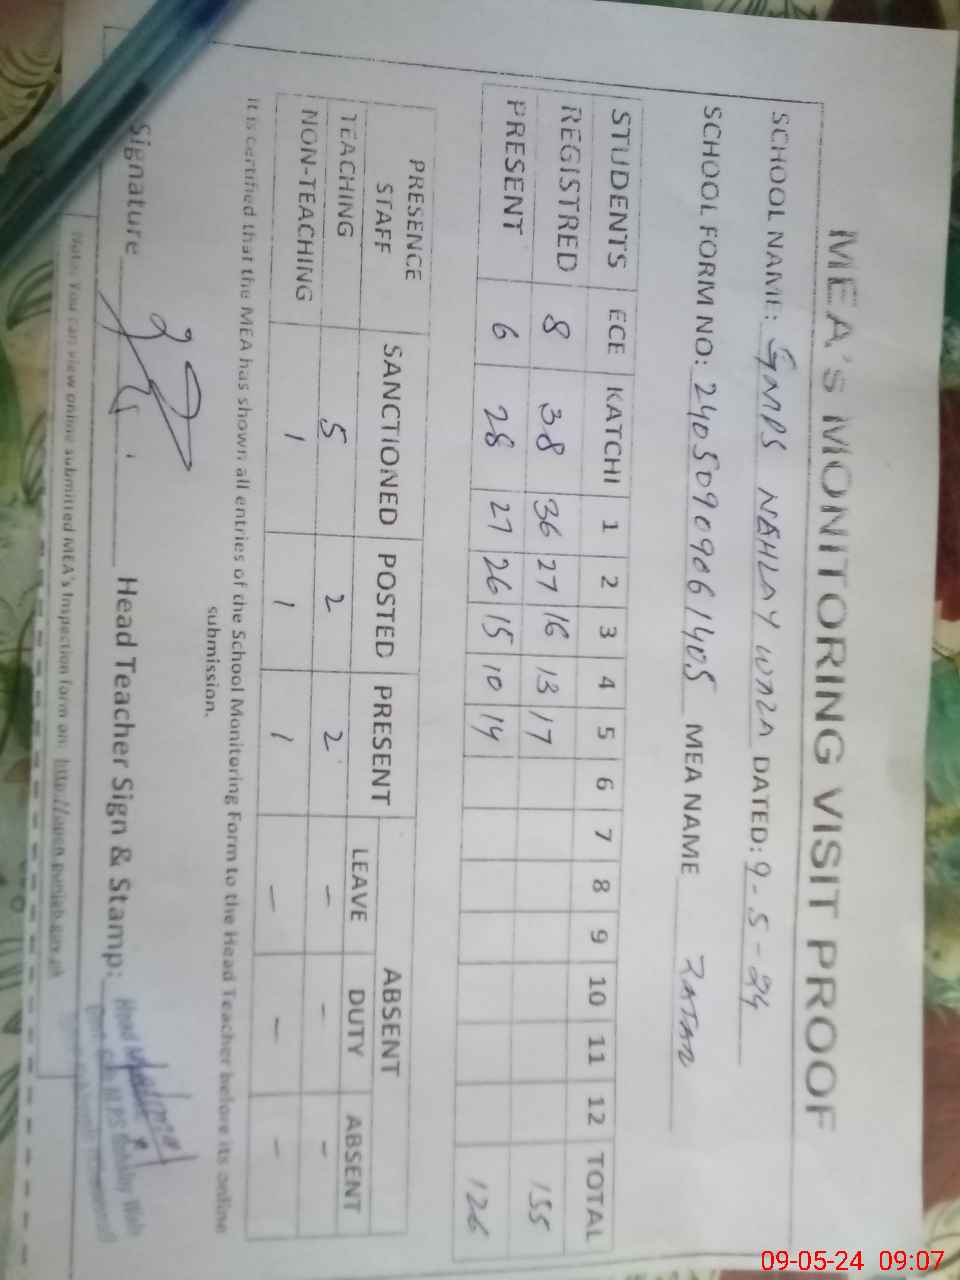 MEA'S MONITORING VISIT PROOF
SCHOOL NAME: GMPS NEHLAY WALA DATED: 9-5-24
SCHOOL FORM NO: 24050909061405 MEA NAME ZAFAR
STUDENTS ECE KATCHI 1 2 3 4 5 6 7 8 9 10 11 12 TOTAL
REGISTRED 8 38 36 27 16 13 17 155
PRESENT 6 28 27 26 15 10 14 126
PRESENCE STAFF SANCTIONED POSTED PRESENT ABSENT
LEAVE DUTY ABSENT
TEACHING 5 2 2 - - -
NON-TEACHING 1 1 1 - - -
It is certified that the MEA has shown all entries of the School Monitoring Form to the Head Teacher before its online
submission.
Signature Head Teacher Sign & Stamp: Head
Note: You can view online submitted MEA's Inspection form on: http://open.punjab.gov.pk
09-05-24 09:07